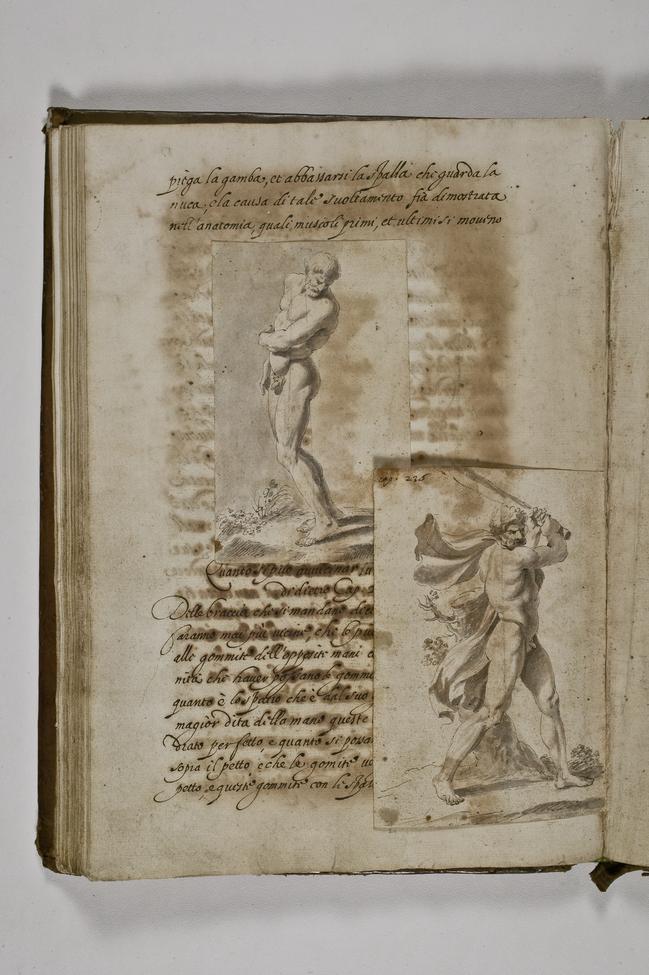 piega la gamba, et abbassarsi la spalla che guarda la
nuca, e la causa di tale suoltamento fia dimostrata
nell'anatomia, quali muscoli primi, et ultimi si moueno
cap. 236
Quanto si può auuicinar
di dietro Cap.
Delle braccia che si mandano di
faranno mai più uicine, che le
alle gommite dell'opposite mani
che hauer possano le gomme
quanto è lo spatio che è dal suo
magior dita della mano queste
drato perfetto, e quanto si possa
sopra il petto e che le gomite
petto, e queste gommite con le